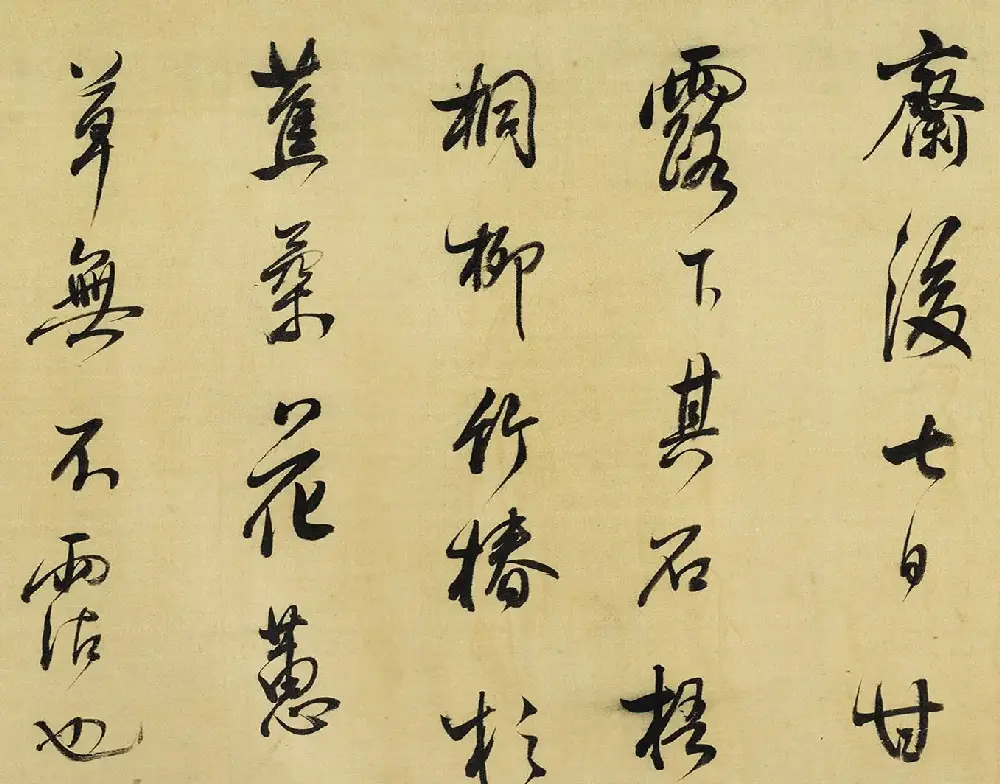 齋後七日甘
露下其石梧
桐柳竹椿杉
蕉藥花蕙
草無不霑也